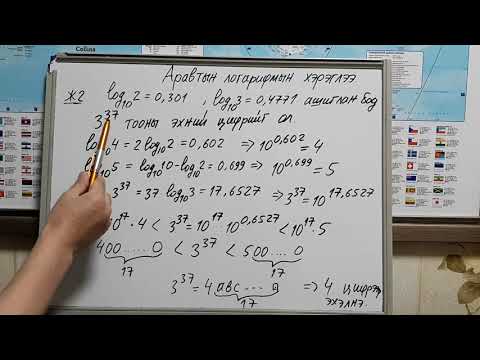 Аравтын логарифмын хэрэглээ
Ж2 log₁₀2 = 0,301 , log₁₀3 = 0,4771 ашиглан бод
3³⁷ тооны эхний цифрийг ол.
log₁₀4 = 2log₁₀2 = 0,602 ⇒ 10^0,602 = 4
log₁₀5 = log₁₀10 - log₁₀2 = 0,699 ⇒ 10^0,699 = 5
3³⁷ = 37·log₁₀3 = 17,6527 ⇒ 3³⁷ = 10^17,6527
10¹⁷·4 < 3³⁷ = 10¹⁷·10^0,6527 < 10¹⁷·5
400.....0 < 3³⁷ < 500....0
17 17
3³⁷ = 4abc....a ⇒ 4 цифрээр
17 эхэлнэ.